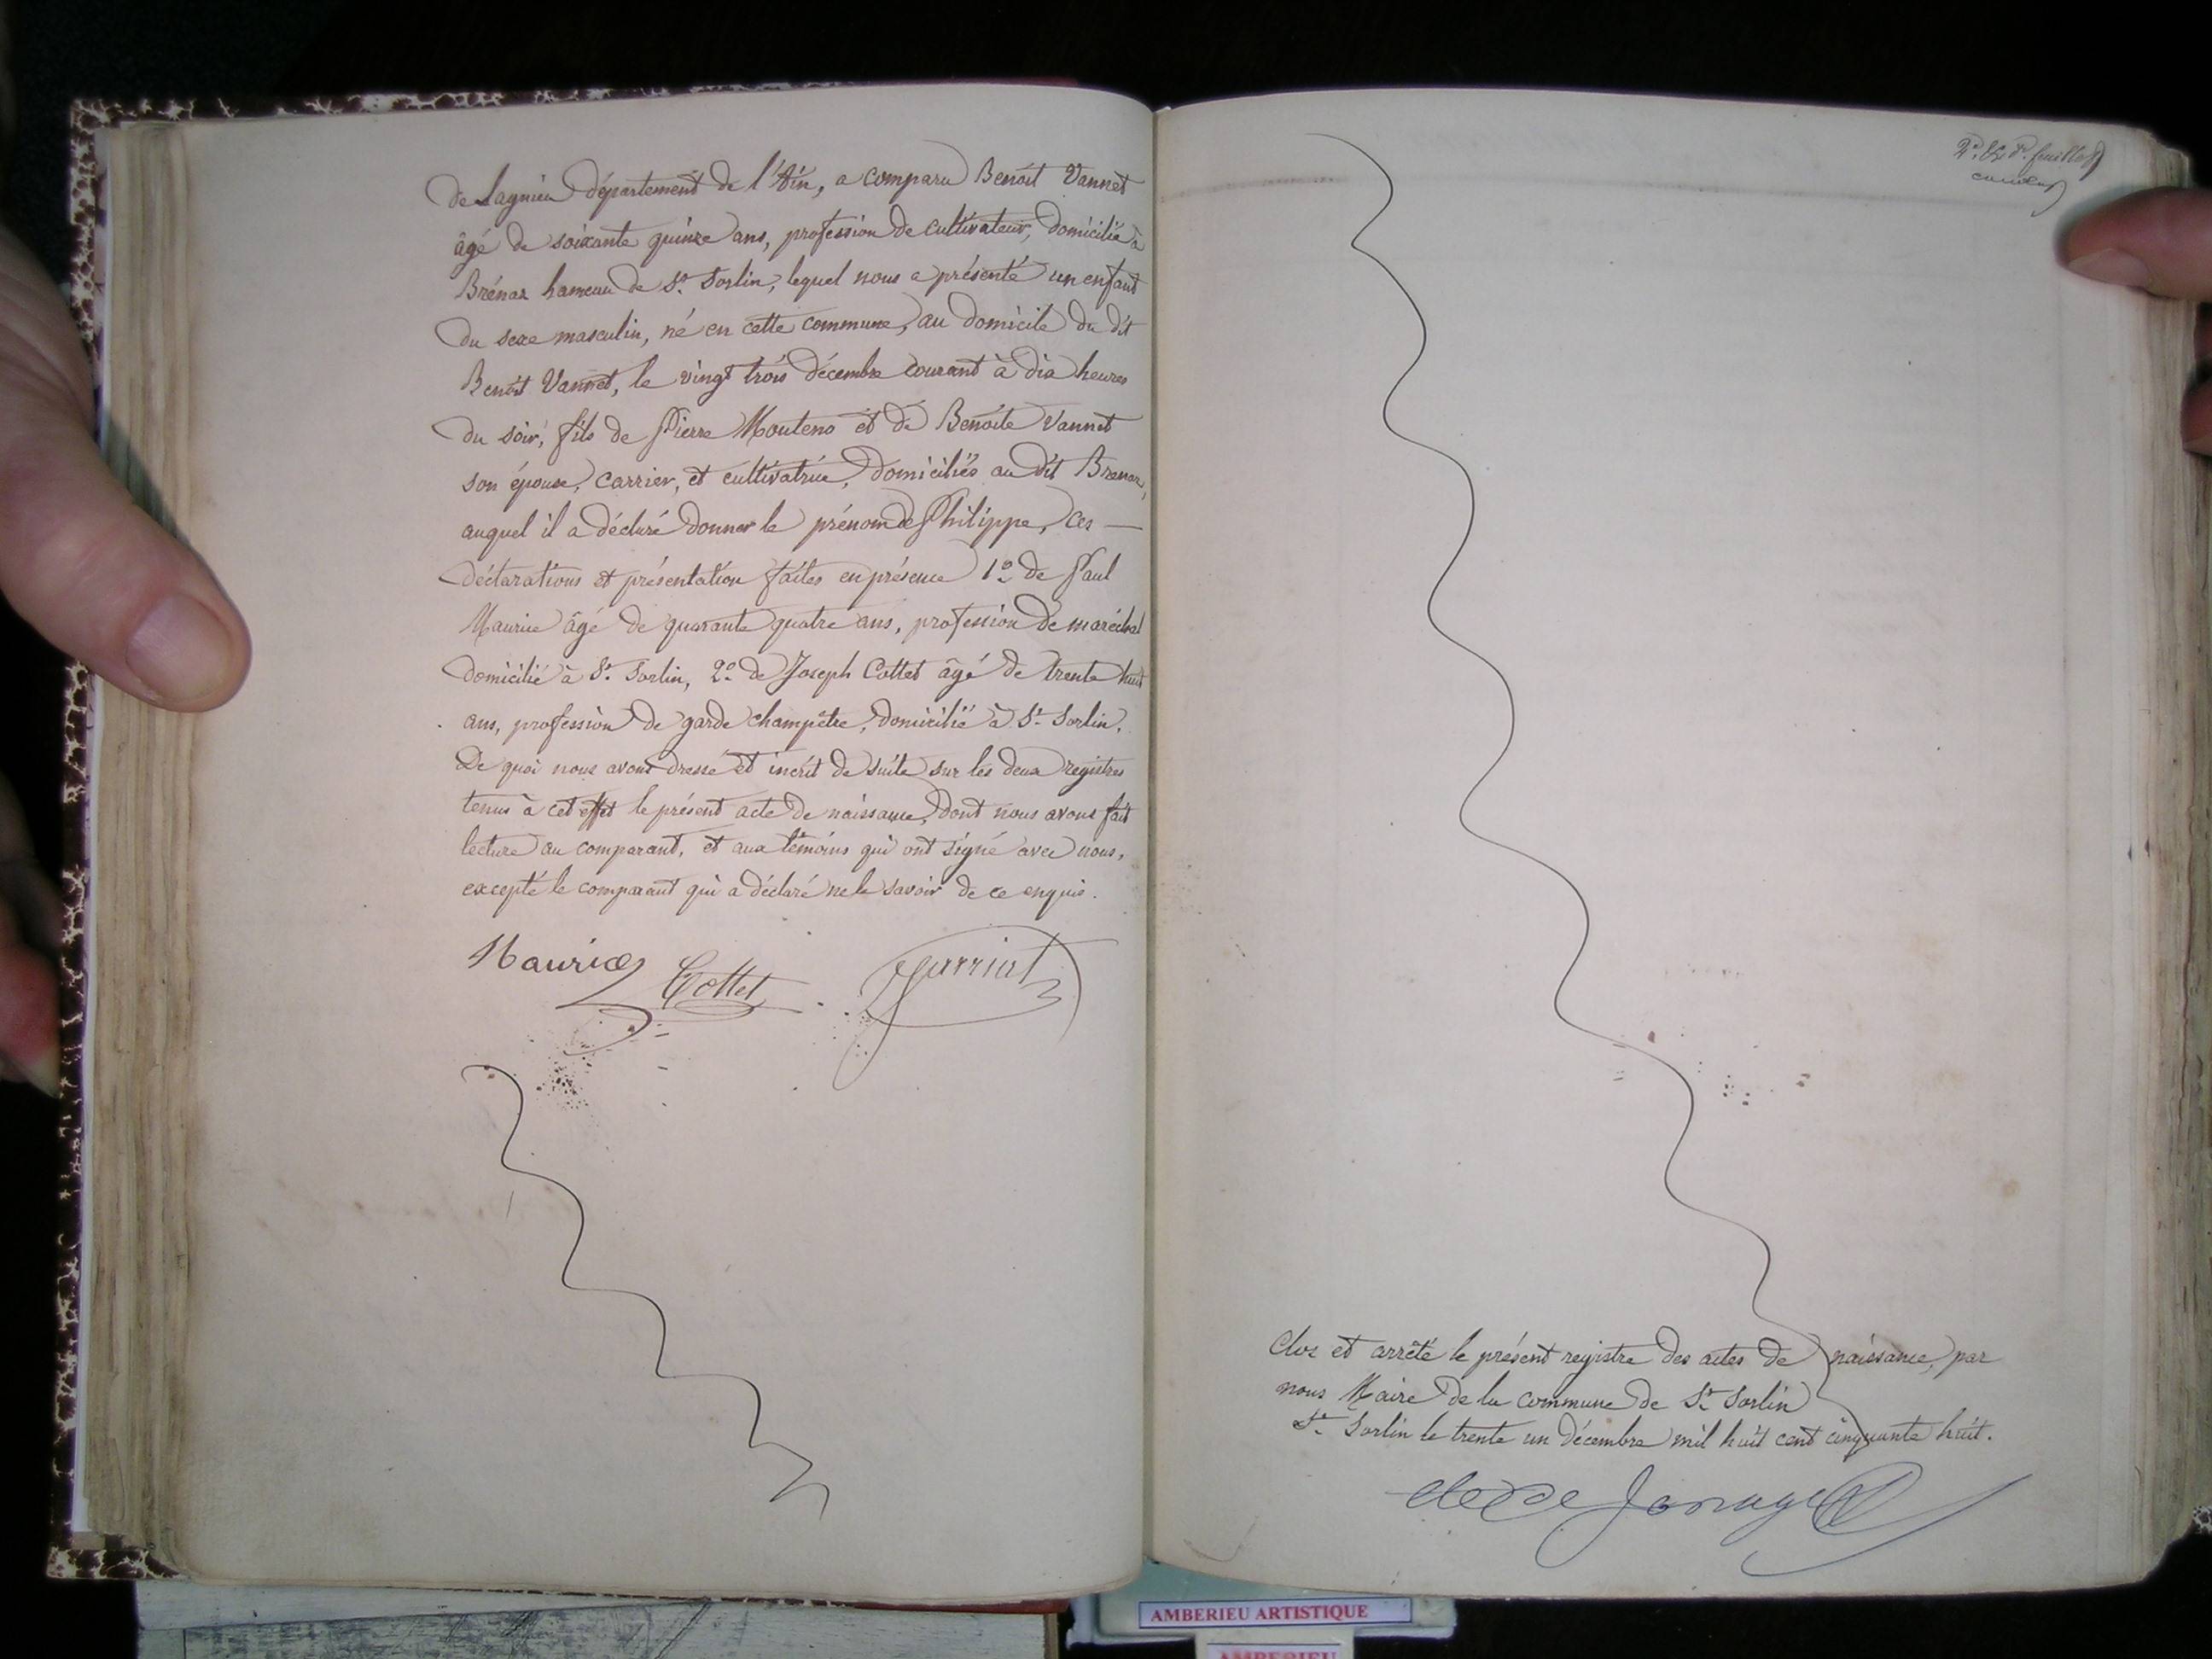 de Lagnieu département de l'Ain, a comparu Benoit Vannet
âgé de soixante quinze ans, profession de cultivateur, domicilié à
Brénaz hameau de St. Sorlin, lequel nous a présenté un enfant
du sexe masculin, né en cette commune, au domicile du dit
Benoit Vannet, le vingt trois décembre courant à dix heures
du soir, fils de Pierre Moutens et de Benoite Vannet
son épouse, carrier, et cultivatrice, domiciliés au dit Brenaz,
auquel il a déclaré donner le prénom de Philippe, ces —
déclarations et présentation faites en présence 1o de Paul
Maurice âgé de quarante quatre ans, profession de maréchal
domicilié à St. Sorlin, 2o de Joseph Cottet âgé de trente huit
ans, profession de garde champêtre, domicilié à St. Sorlin.
De quoi nous avons dressé et inscrit de suite sur les deux registres
tenus à cet effet le présent acte de naissance, dont nous avons fait
lecture au comparant, et aux témoins qui ont signé avec nous,
excepté le comparant qui a déclaré ne le savoir de ce enquis.
Maurice Cottet Jarriat
feuillet
Clos et arrêté le présent registre des actes de naissance, par
nous Maire de la commune de St. Sorlin
St. Sorlin le trente un décembre mil huit cent cinquante huit.
AMBERIEU ARTISTIQUE
AMBERIEU